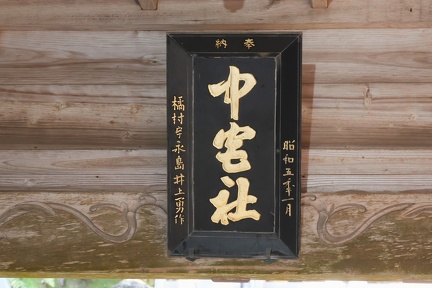 奉納
中宮社
昭和五十年一月
橘村字永島井上勇作